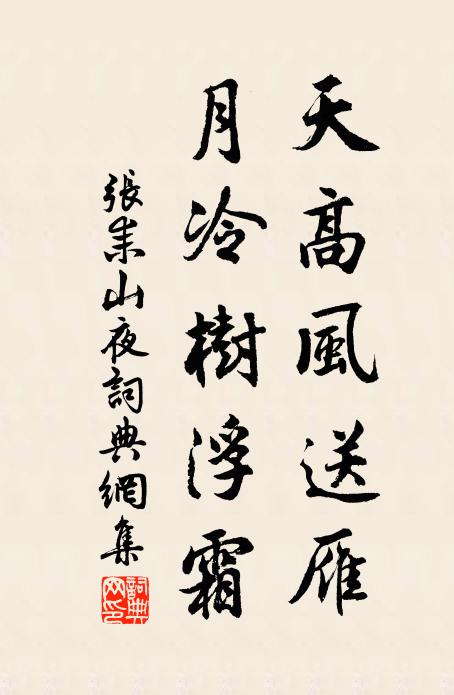 天高風送雁
月冷樹浮霜
張耒山夜詞典網集
詞典
网印